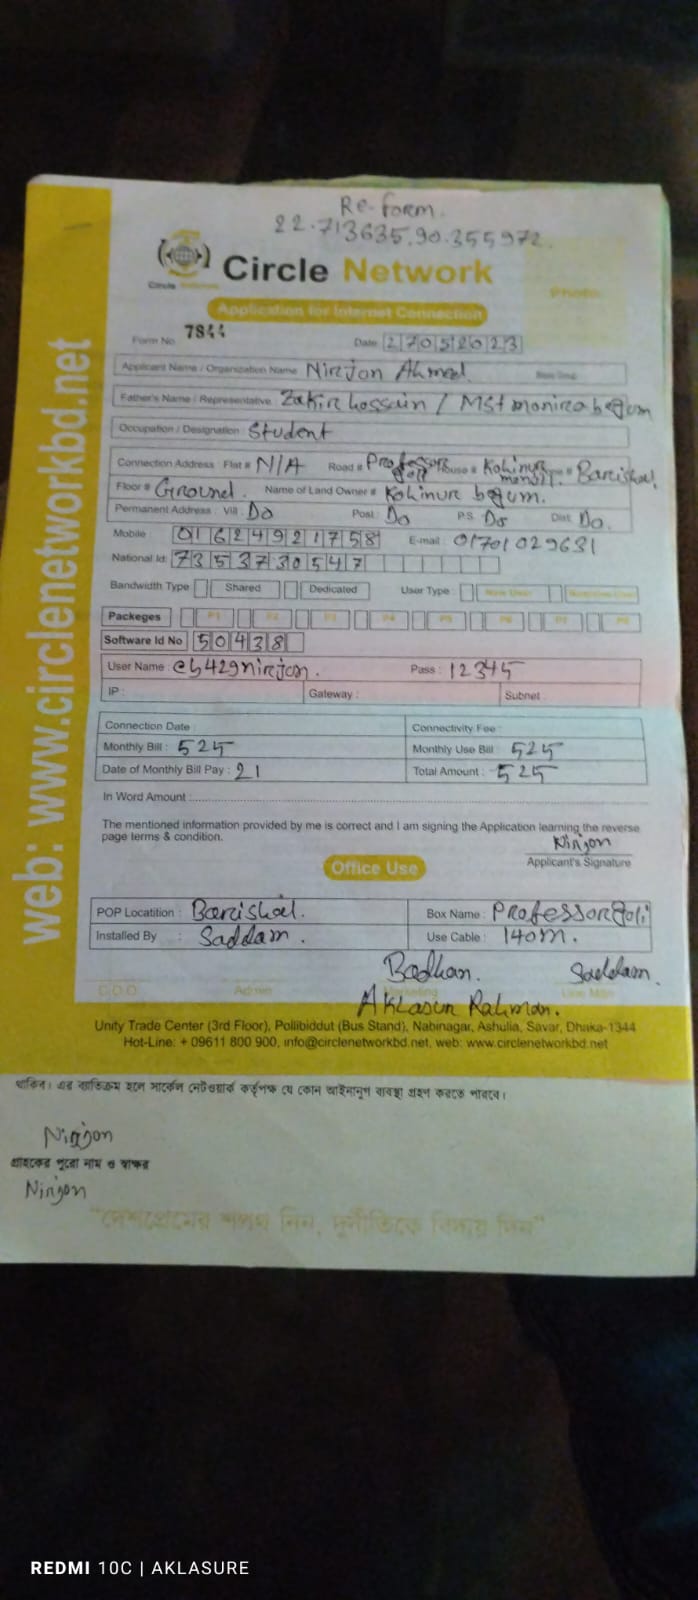 Re-form.
22.713635,90.355972.
Circle Network
Circle Network
Application for Internet Connection
Photo
Form No. 7844 Date 27052023
Applicant Name / Organization Name Nirjon Ahmed.
Father's Name / Representative : Zakir hossain / Mst monira begum
Occupation / Designation : Student
Connection Address : Flat # N/A Road # Professor goli House # Kohinur monjil. Barishal.
Floor # Ground. Name of Land Owner # Kohinure begum.
Permanent Address : Vill : Do Post : Do P.S : Do Dist : Do.
Mobile : 01624921758 E-mail : 01701029631
National Id: 7353730547
Bandwidth Type Shared Dedicated User Type : New User
Packeges P1 P2 P3 P4 P5 P6 P7 P8
Software Id No 50438
User Name : cb429nirjon. Pass : 12345
IP : Gateway : Subnet :
Connection Date : Connectivity Fee :
Monthly Bill : 525 Monthly Use Bill : 525
Date of Monthly Bill Pay : 21 Total Amount : 525
In Word Amount :
The mentioned information provided by me is correct and I am signing the Application learning the reverse
page terms & condition.
Nirjon
Applicant's Signature
Office Use
POP Locatition : Barishal. Box Name : Professor goli
Installed By : Saddam. Use Cable : 140m.
Badhan. Saddam.
C.O.O Admin Marketing Line Man
Aklasur Rahman.
Unity Trade Center (3rd Floor), Pollibiddut (Bus Stand), Nabinagar, Ashulia, Savar, Dhaka-1344
Hot-Line: + 09611 800 900, info@circlenetworkbd.net, web: www.circlenetworkbd.net
web: www.circlenetworkbd.net
থাকিব। এর ব্যতিক্রম হলে সার্কেল নেটওয়ার্ক কর্তৃপক্ষ যে কোন আইনানুগ ব্যবস্থা গ্রহণ করতে পারবে।
Nirjon
গ্রাহকের পুরো নাম ও স্বাক্ষর
Nirjon
"দেশপ্রেমের শপথ নিন, দুর্নীতিকে বিদায় দিন"
REDMI 10C | AKLASURE